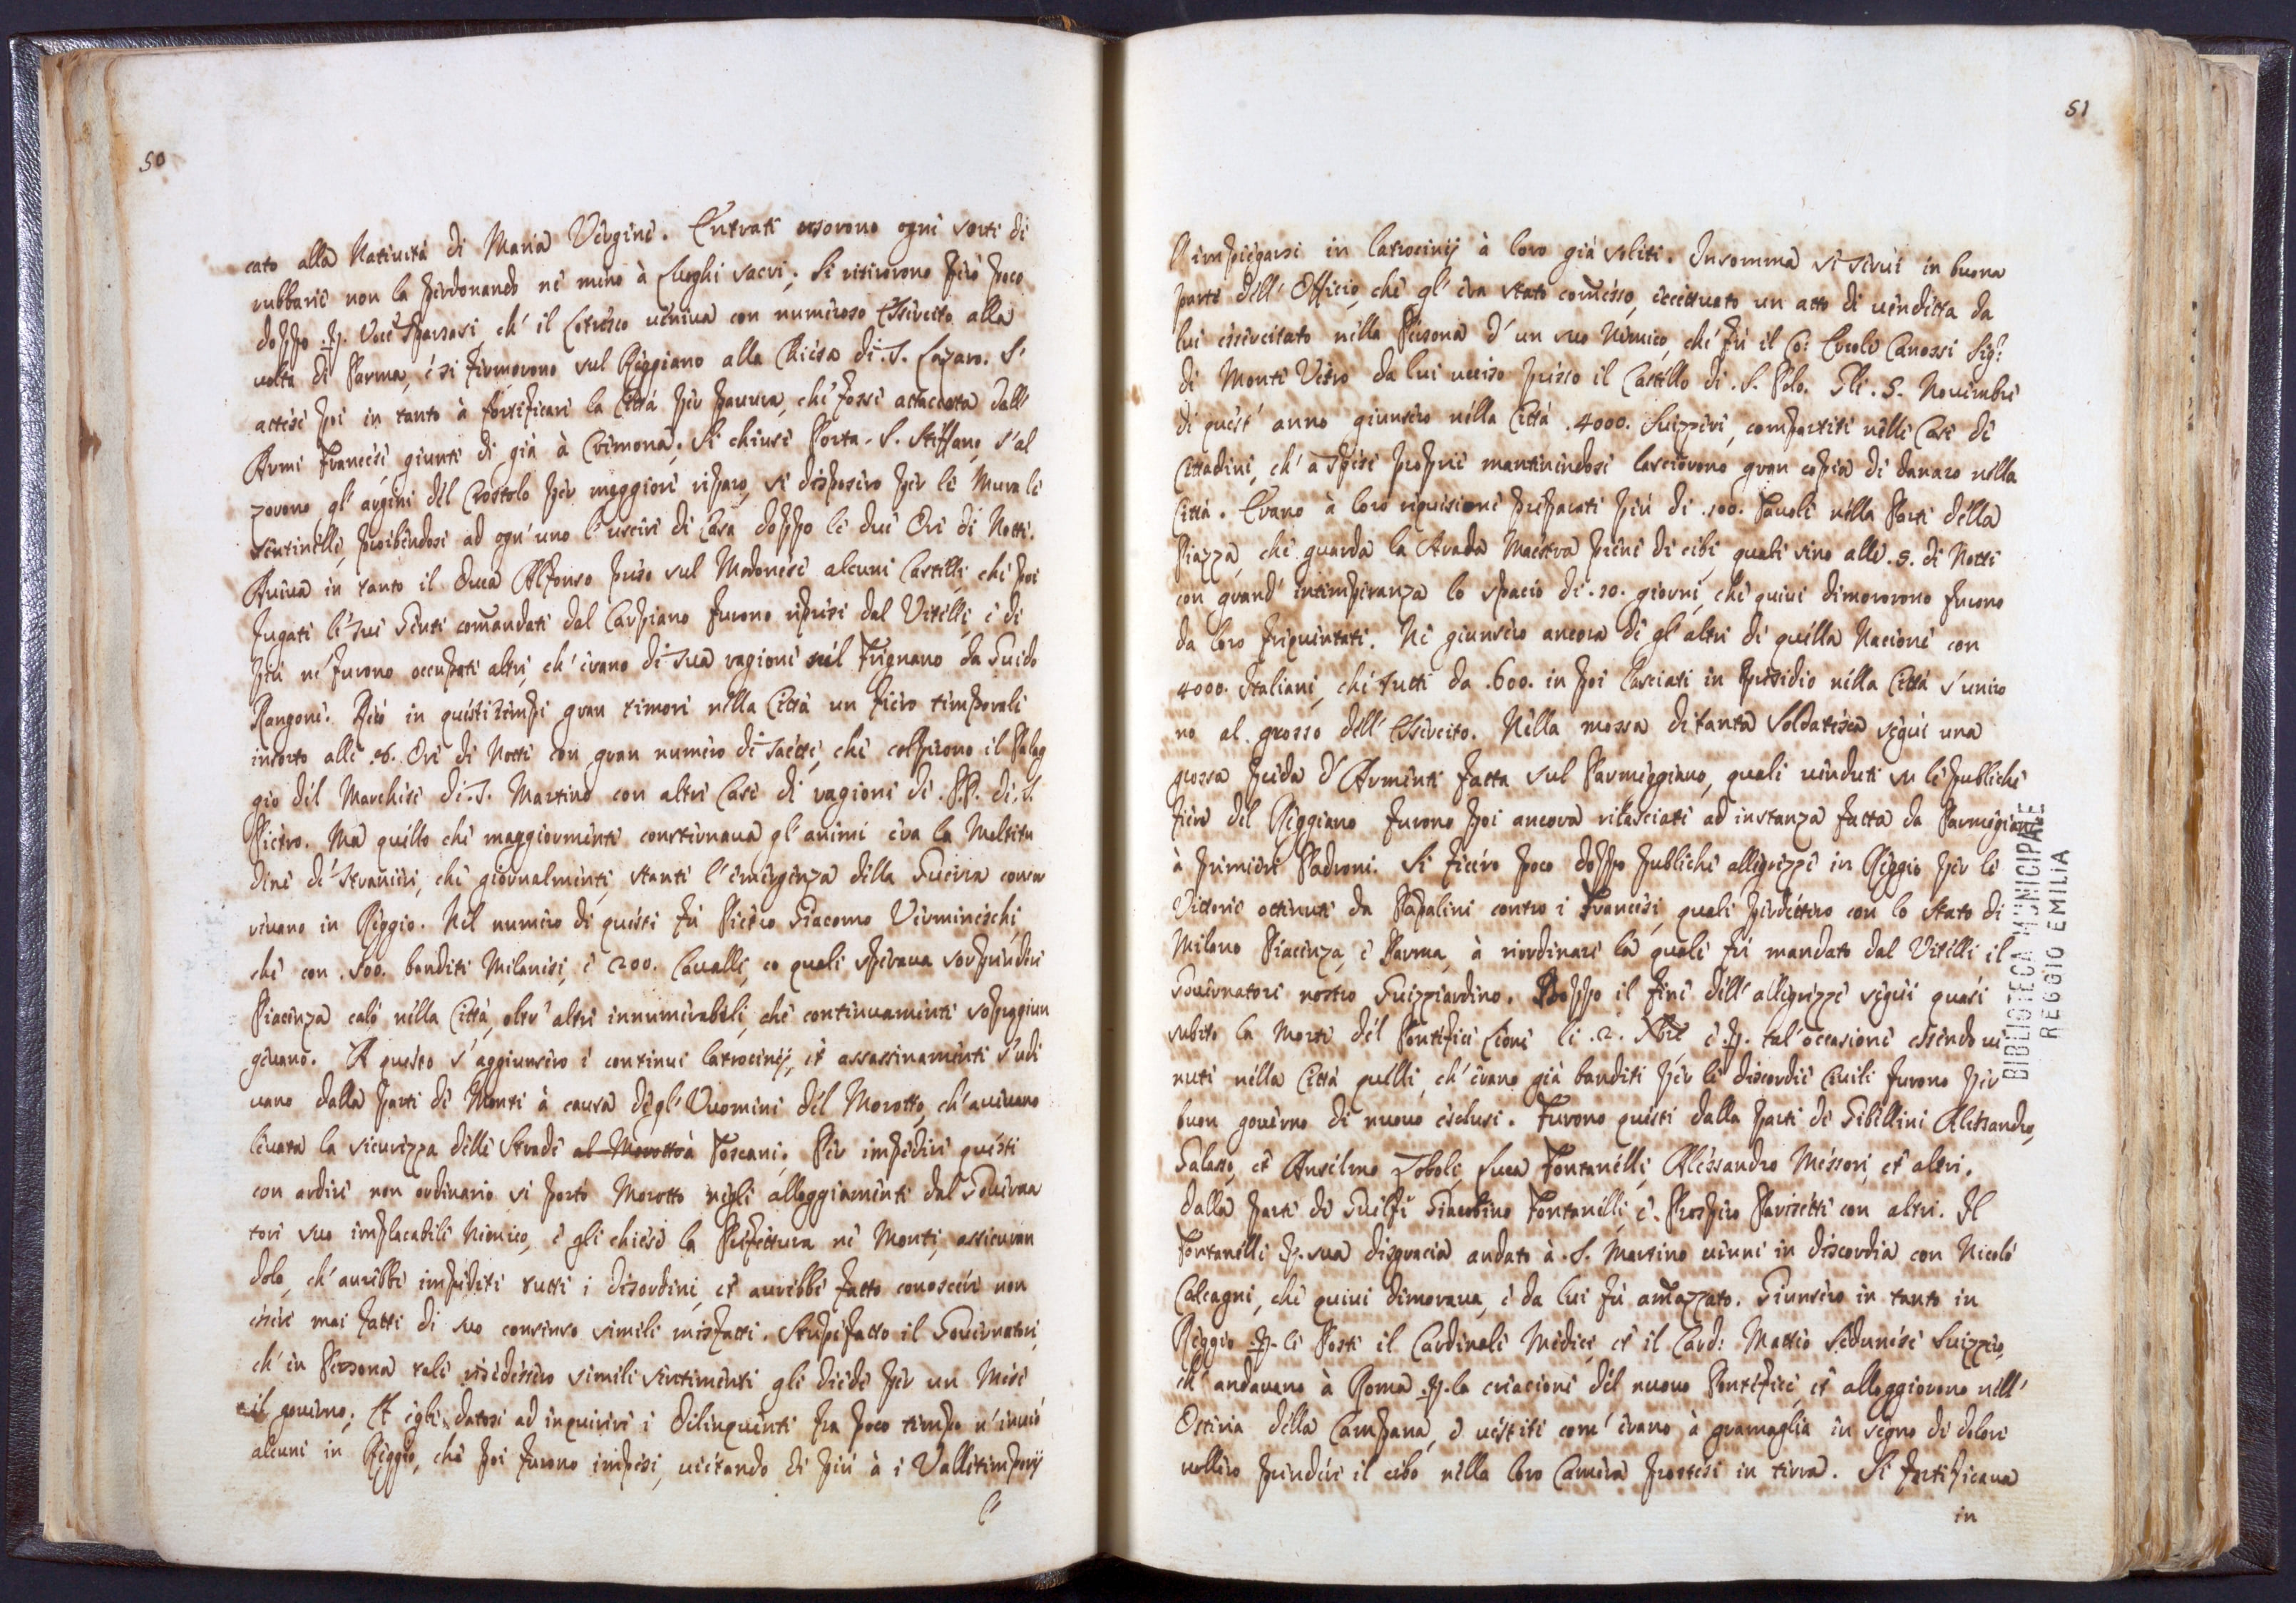 50
cato alla Natiuità di Maria Vergine. Entrati usorono ogni sorte di
rubbarie non la perdonando ne meno à Luoghi sacri; Si ritirorono però poco
doppo p. voce sparsasi, ch' il Lotresco veniua con numeroso Essercito alla
uolta di Parma, è si firmorono sul Reggiano alla Chiesa di S. Lazaro. S'
attese poi in tanto à fortificare la Città per paura, che fosse attaccata dall'
Armi Francesi giunti di già à Cremona. Si chiuse Porta S. Steffano, s'al
zorono gl' argini del Crostolo per maggiore riparo, si disposero per le Mura le
sentinelle, proibendosi ad ogn' uno l' uscire di Casa doppo le due Ore di Notte.
Aueua in tanto il Duca Alfonso preso sul Modonese alcuni Castelli, che poi
fugati le sue Genti comandati dal Carpiano furono ripresi dal Vitelli, è di
più ne furono occupati altri, ch' erano di sua ragione nel Frignano da Guido
Rangone. Recò in questi tempi gran timore nella Città un fiero temporale
insorto alle .6. Ore di Notte con gran numero di saette, che colpirono il Palag
gio del Marchese di S. Martino con altre Case di ragione de .PP. di S.
Pietro. Mà quello che maggiormente consternaua gl' animi era la Moltitu
dine de' stranieri, che giornalmente, stante l' emergenza della Guerra concor
reuano in Reggio. Nel numero di questi fù Pietro Giacomo Vermineschi,
che con .500. banditi Milanesi, è 200. Caualli, co quali speraua sorprendere
Piacenza calò nella Città, oltr' altri innumerabili, che continuamente sopragiun
geuano. A questo s' aggiunsero i continui latrocinij, et assassinamenti s' udi
uano dalla parte de Monti à causa degl' Vuomini del Morotto, ch' aueuano
leuata la sicurezza delle Strade al Morotto à Toscani. Per impedire questi
con ardire non ordinario si portò Morotto negli alloggiamenti dal Gouerna
tore suo implacabile nemico, è gli chiese la Prefettura ne Monti, assicuran
dolo, ch' aurebbe impediti tutti i disordini, et aurebbe fatto conoscere non
essere mai fatti di suo consenso simili misfatti. Stupefatto il Gouernatore,
ch' in Persona tale risiedessero simili sentimenti gli diede per un Mese
il gouerno; Et egli datosi ad inquirire i Delinquenti fra poco tempo n' inuiò
alcuni in Reggio, che poi furono impesi, uietando di più à i Vallitempory
l'
51
l' impiegarsi in latrocinij à loro già soliti. Insomma si serui in buona
parte dell' Officio, che gl' era stato comesso, eccettuato un atto di uendetta da
lui essercitato nella Persona d' un suo Nemico, che fù il Co: Ercole Canossi Sigr.
di Monte Vetro da lui ucciso presso il Castello di .S. Polo. Gli .5. Nouembre
di quest' anno giunsero nella Città .4000. Suizzeri, compartiti nelle Case de
Cittadini, ch' a spese proprie mantenendosi lasciorono gran copia di danaro nella
Città. Erano à loro riquisizione preparati più di .100. Tauole nella Parte della
Piazza, che guarda la strada Maestra piene di cibi, quali sino alle .5. di Notte
con grand' intemperanza lo spacio di .10. giorni, che quiui dimororono furono
da loro frequentati. Ne giunsero ancora de gl' altri di quella Nacione con
4000. Italiani, che tutti da .600. in poi lasciati in Presidio nella Città s' uniro
no al grosso dell' Essercito. Nella mossa di tanta Soldatesca seguì una
grossa preda d' Armenti fatta sul Parmeggiano, quali uenduti su le publiche
fiere del Reggiano furono poi ancora rilasciati ad instanza fatta da Parmegiani
à primieri Padroni. Si fecero poco doppo publiche allegrezze in Reggio per le
Vittorie ottenute da Papalini contro i Francesi, quali perdettero con lo Stato di
Milano Piacenza, è Parma, à riordinare la quale fù mandato dal Vitelli il
Gouernatore nostro Guizziardino. Doppo il fine dell' allegrezze seguì quasi
subito la Morte del Pontefice Lione li .2. Xbre è p. tal' occasione essendo ue
nuti nella Città quelli, ch' erano già banditi per le discordie Ciuili furono per
buon gouerno di nuouo esclusi. Furono questi dalla parte de Gibellini Alessandro,
Galasso, et Anselmo Zoboli, Luca Fontanelli, Alessandro Messori, et altri.
dalla parte de Guelfi Giacobino Fontanelli, è Prospero Parisetti con altri. Il
Fontanelli p. sua disgracia andato à .S. Martino uenne in discordia con Nicolò
Calcagni, che quiui dimoraua, è da lui fù amazzato. Giunsero in tanto in
Reggio p. le Poste il Cardinale Medici, et il Card: Matteo Sedunese Suizzero,
ch' andauano à Roma p. la creacione del nuouo Pontefice, et alloggiorono nell'
Osteria della Campana, è uestiti com' erano à gramaglia in segno di dolore
uollero prendere il cibo nella loro Camera prostesi in terra. Si fortificaua
in
BIBLIOTECA MUNICIPALE
REGGIO EMILIA